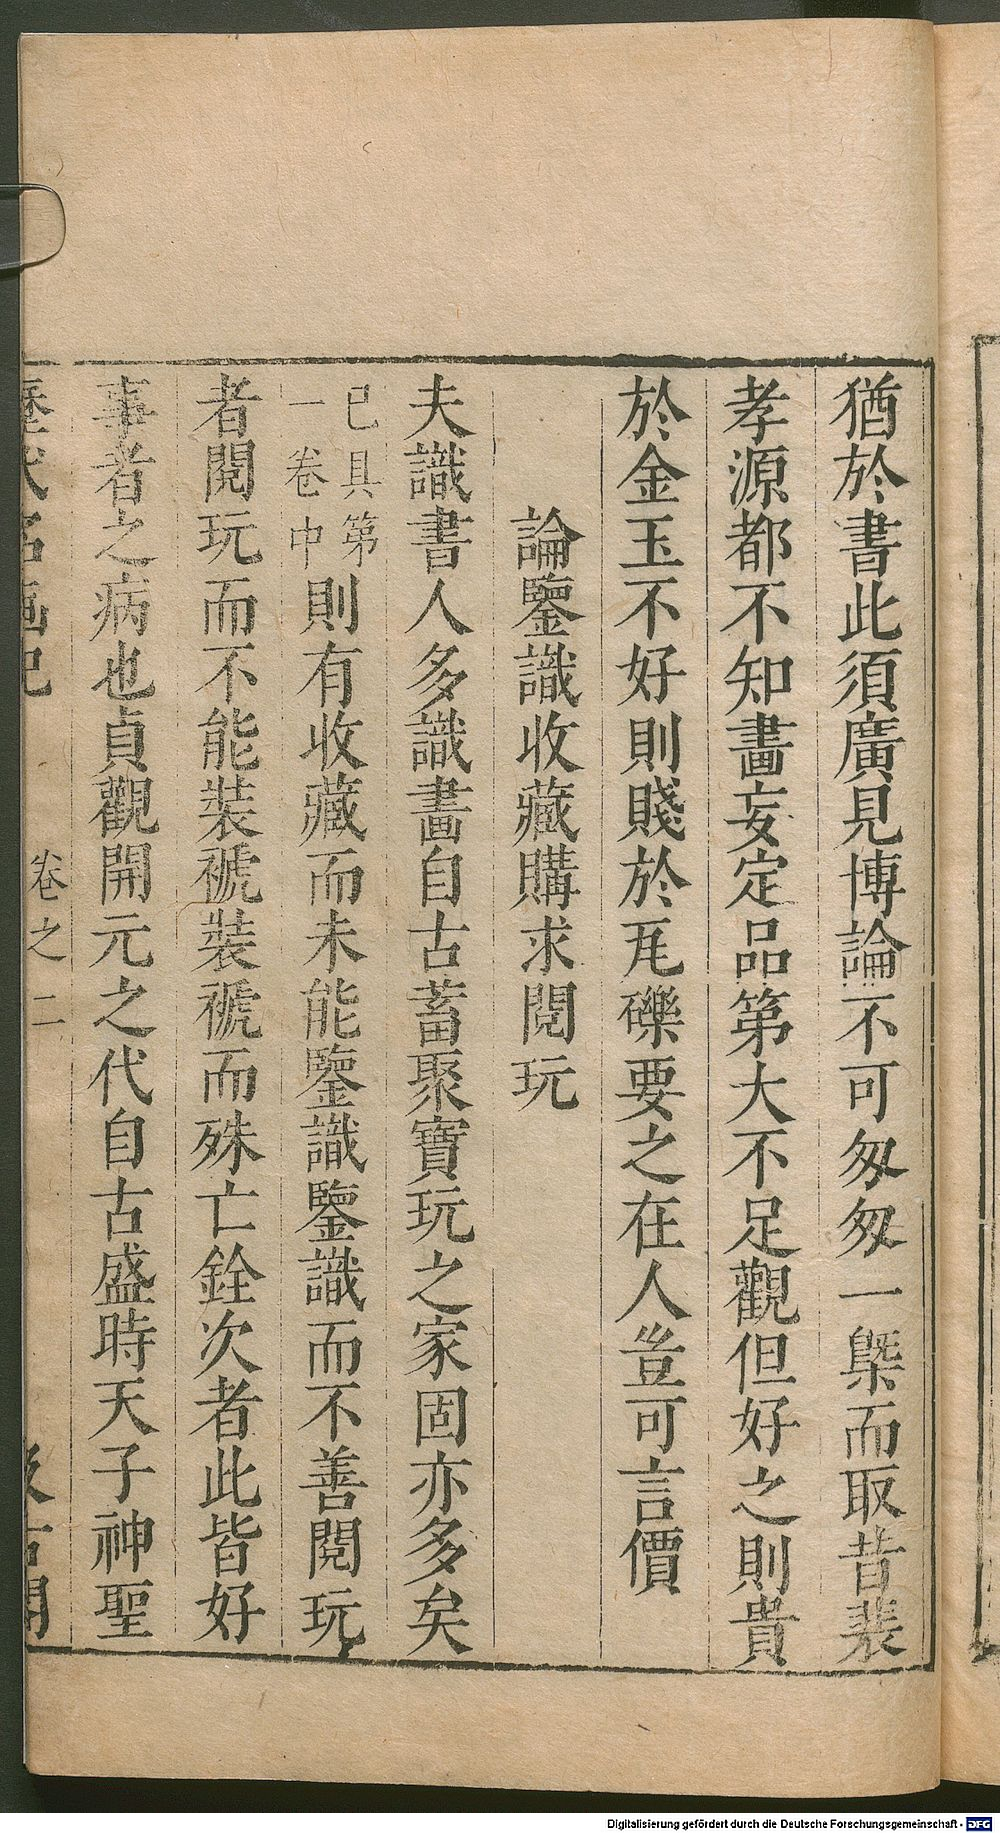 猶於書此須廣見博論不可匆匆一槩而取昔裴
孝源都不知畫妄定品第大不足觀但好之則貴
於金玉不好則賤於瓦礫要之在人豈可言價
論鑒識收藏購求閱玩
夫識書人多識畫自古蓄聚寶玩之家固亦多矣
已具第一卷中則有收藏而未能鑒識鑒識而不善閱玩
者閱玩而不能裝褫裝褫而殊亡銓次者此皆好
事者之病也貞觀開元之代自古盛時天子神聖
歷代名畫記 卷之二 汲古閣
Digitalisierung gefördert durch die Deutsche Forschungsgemeinschaft - DFG